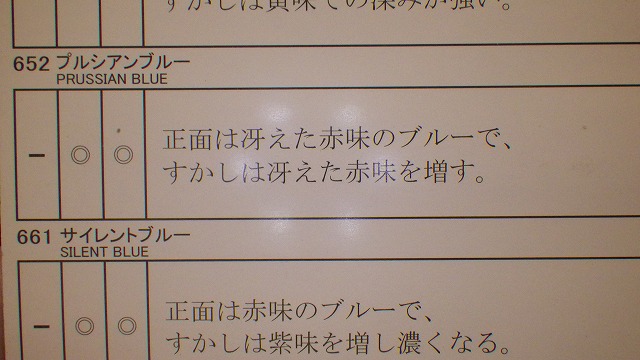 すかしは黄味での深みが強い。
652 プルシアンブルー
PRUSSIAN BLUE
− ◎ ◎
正面は冴えた赤味のブルーで、
すかしは冴えた赤味を増す。
661 サイレントブルー
SILENT BLUE
− ◎ ◎
正面は赤味のブルーで、
すかしは紫味を増し濃くなる。